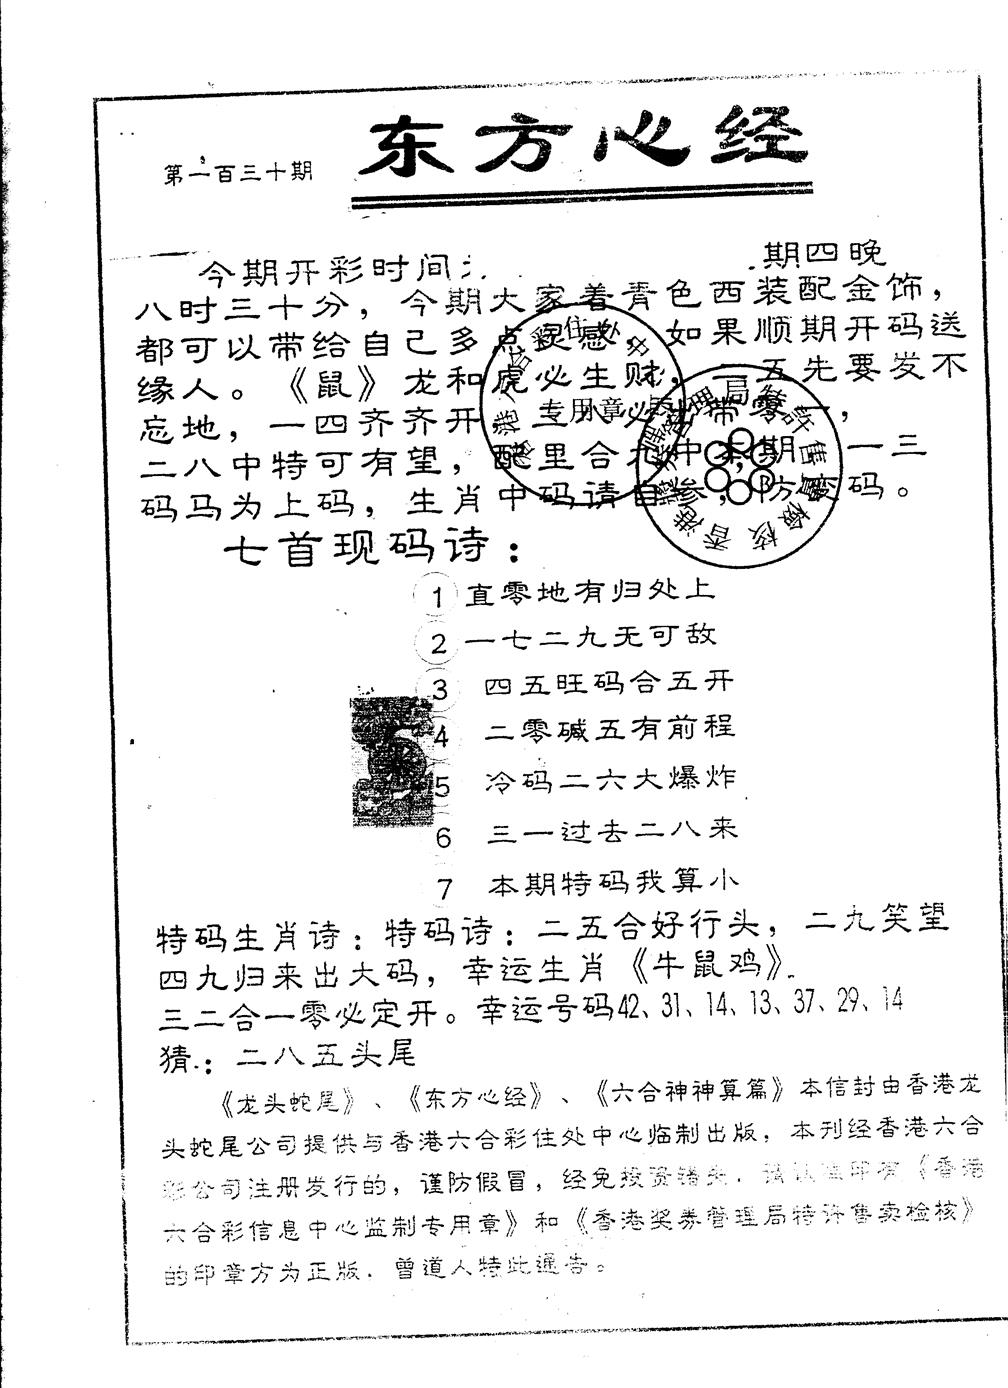 东方心经
第一百三十期
今期开彩时间 期四晚
八时三十分，今期大家着青色西装配金饰，
都可以带给自己多点灵感，如果顺期开码送
缘人。《鼠》龙和虎必生财，二五先要发不
忘地，一四齐齐开 必 带零一，
二八中特可有望，配里合九中本期 一三
码马为上码，生肖中码请自 ，防 码。
七首现码诗：
1 直零地有归处上
2 一七二九无可敌
3 四五旺码合五开
4 二零碱五有前程
5 冷码二六大爆炸
6 三一过去二八来
7 本期特码我算小
特码生肖诗：特码诗：二五合好行头，二九笑望
四九归来出大码，幸运生肖《牛鼠鸡》.
三二合一零必定开。幸运号码42、31、14、13、37、29、14
猜.：二八五头尾
《龙头蛇尾》、《东方心经》、《六合神神算篇》本信封由香港龙
头蛇尾公司提供与香港六合彩住处中心临制出版，本刊经香港六合
彩公司注册发行的，谨防假冒，经免投资错失．请认准印有《香港
六合彩信息中心监制专用章》和《香港奖券管理局特许售卖检核》
的印章方为正版．曾道人特此通告。
专用章
香港奖券管理局特許售賣檢核